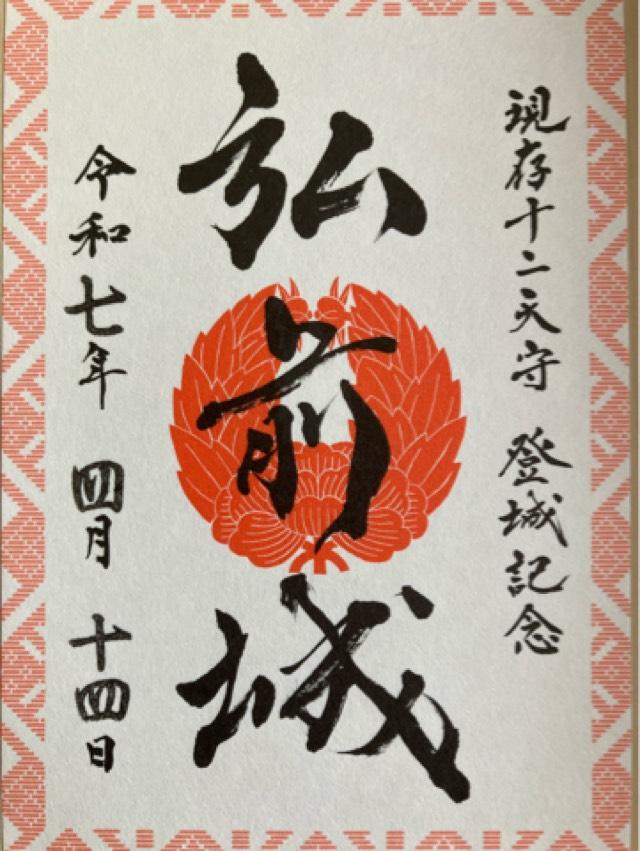 現存十二天守 登城記念
弘前城
令和七年 四月 十四日